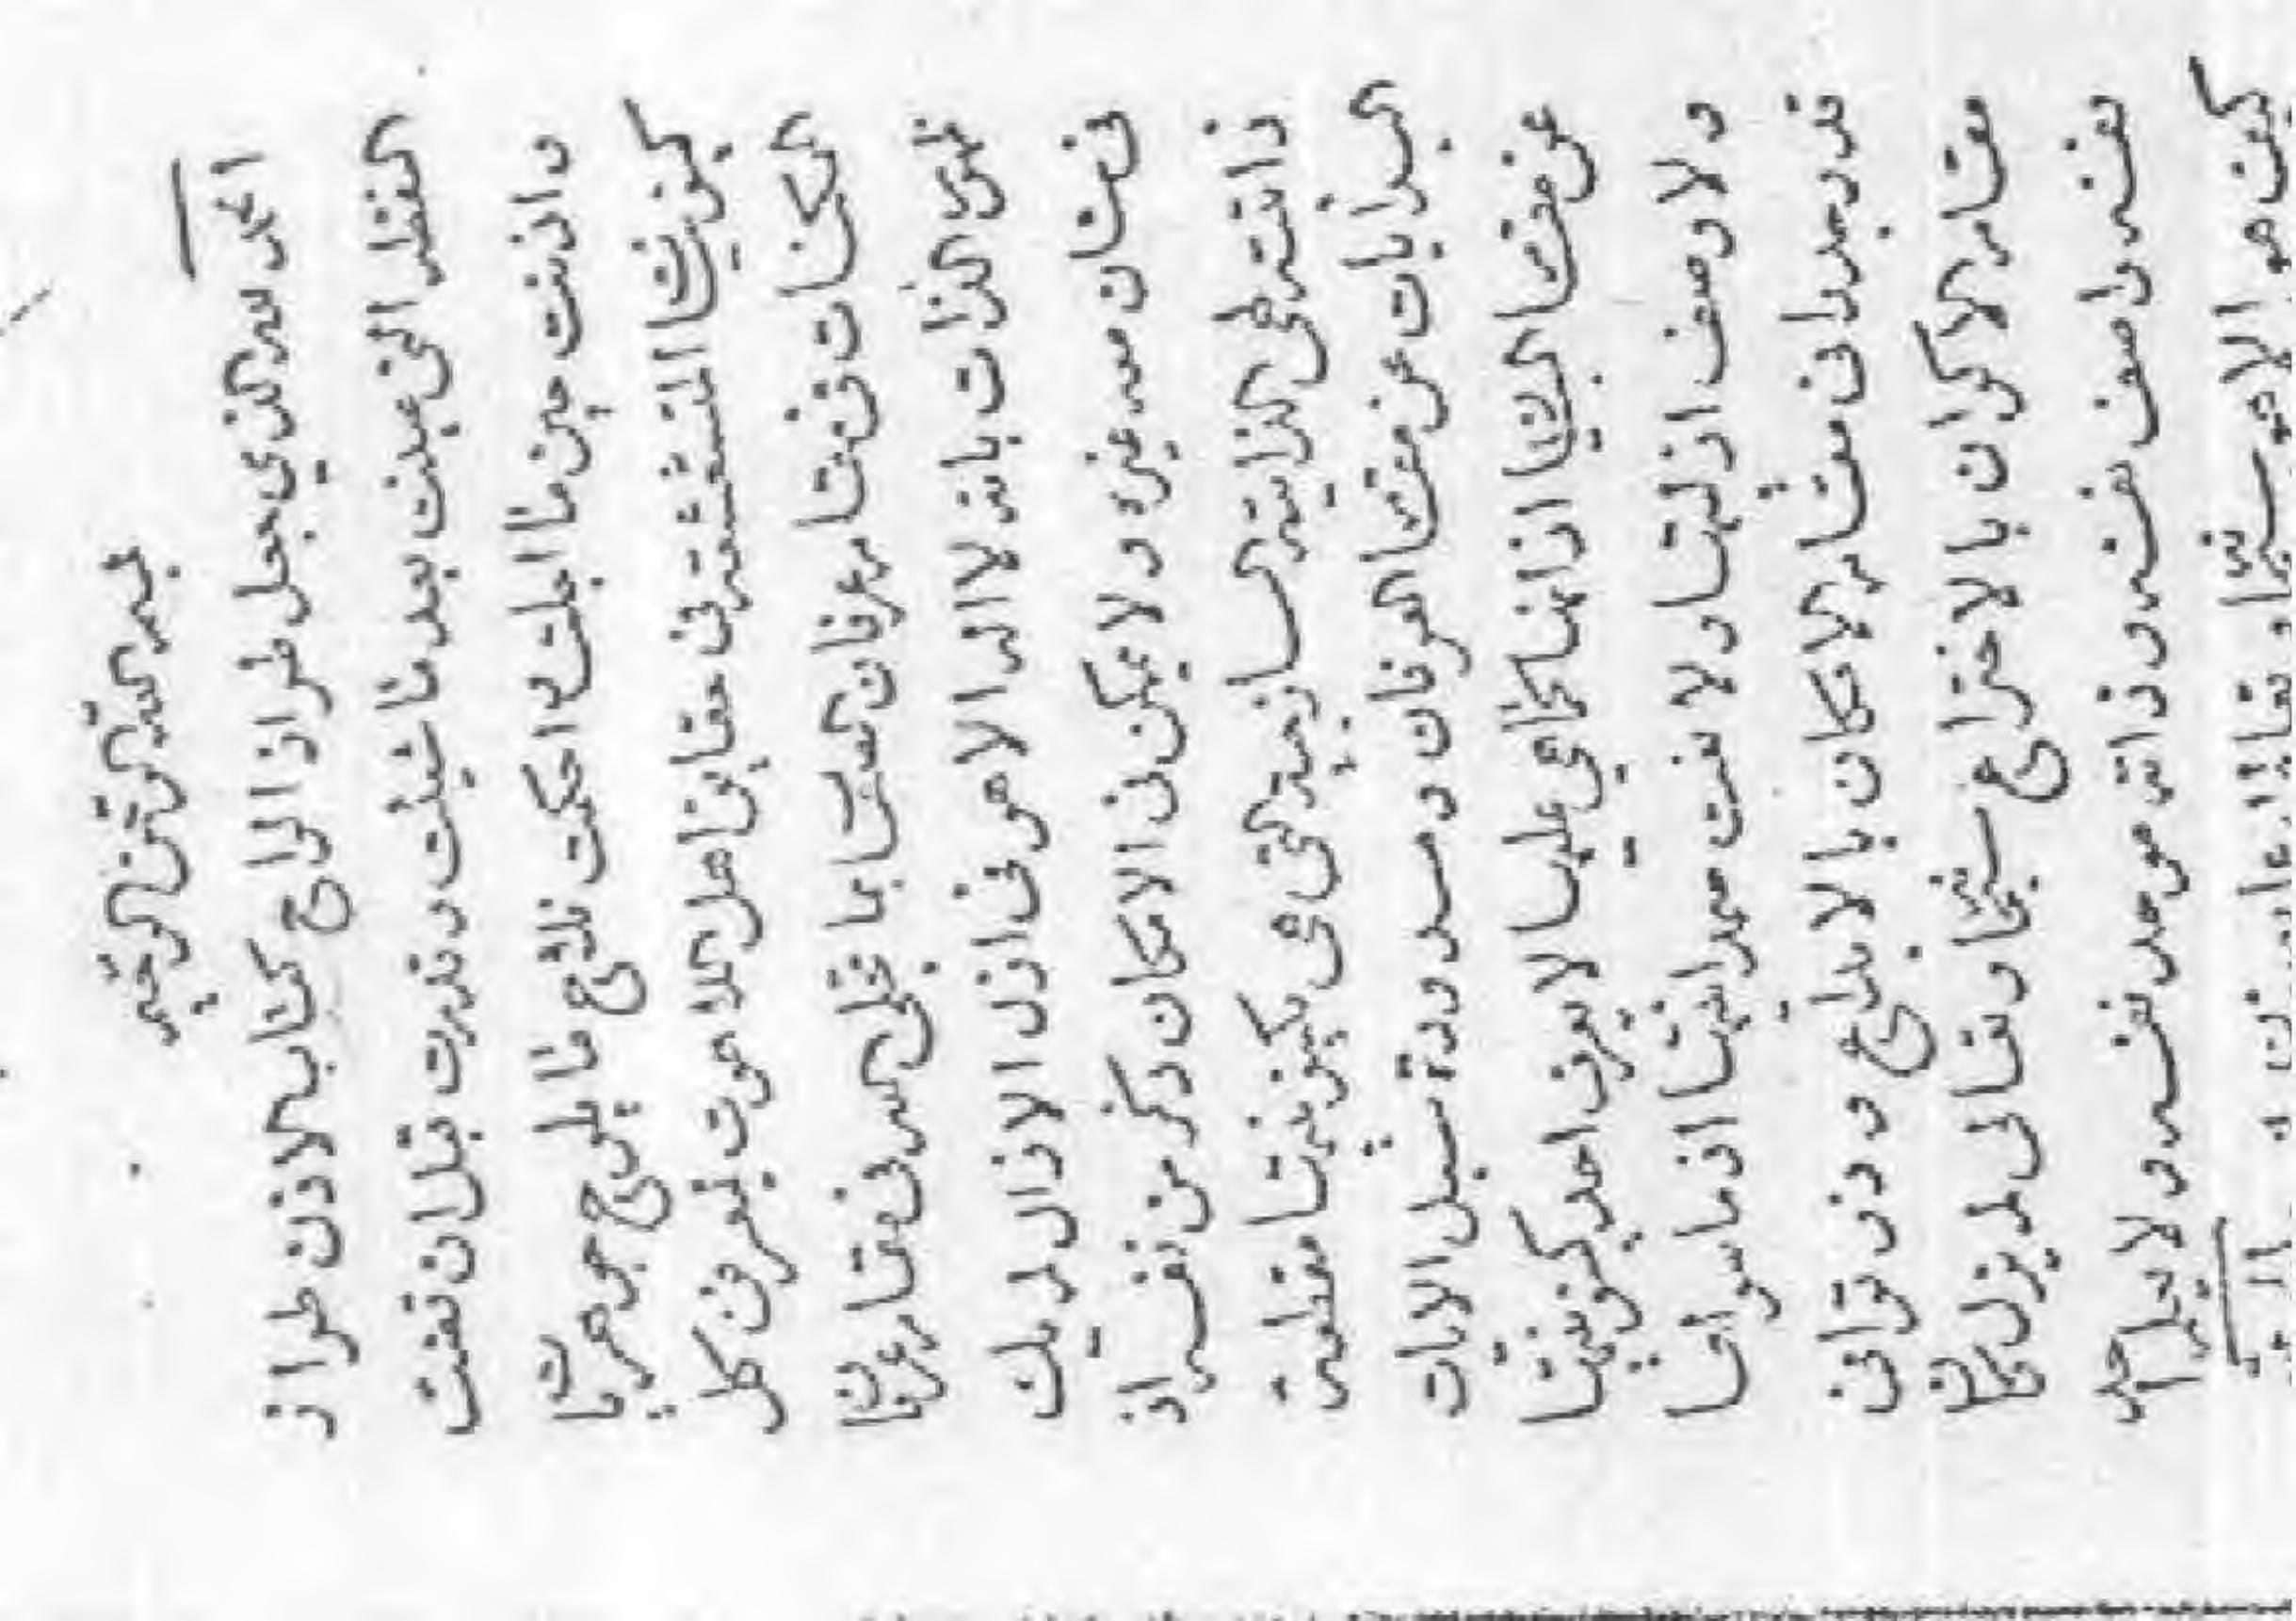 بسم الله الرحمن الرحيم
الحمد لله الذي جعل طراز الواح كتاب الاذن طراز
النقطة التي عينت بعد ما شيئت و قدرت قبل ان قضت
و اذنت حين ما اجلت و احكمت فلاح ما يلوح جوهريات
كينونيات المتشعشعة في حقايق اهل اللاهوت ليعرفن كل
الممكنات في مقام عرفان انفسهم بما تجلى الله في مقام عرفان
ظهور الذات بانه لا اله الا هو في ازل الازال لم يك
في شان معه غيره و لا يمكن في الامكان ذكر من نفسه اذ
ذاتيته هي الذاتية الساذجية التي هي بكينونيتها مقطعة
الجوهريات عن مقام العرفان و مسددة سبل الايات
عن مقام البيان اذ انها كما هي عليها لا يعرف احد كينونيتها
و لا وصف ازليتها و لا نعت صمدانيتها اذ ما سواها
قد وجد و ا في مقام الامكان بالابداع و ذوتوا في
مقام الاكوان بالاختراع سبحانه و تعالى لم يزل كان
نفسه واصف نفسه و ذاته موحد نفسه و لا يعلم احد
كيف هو الا هو سبحانه و تعالى عما يصفون